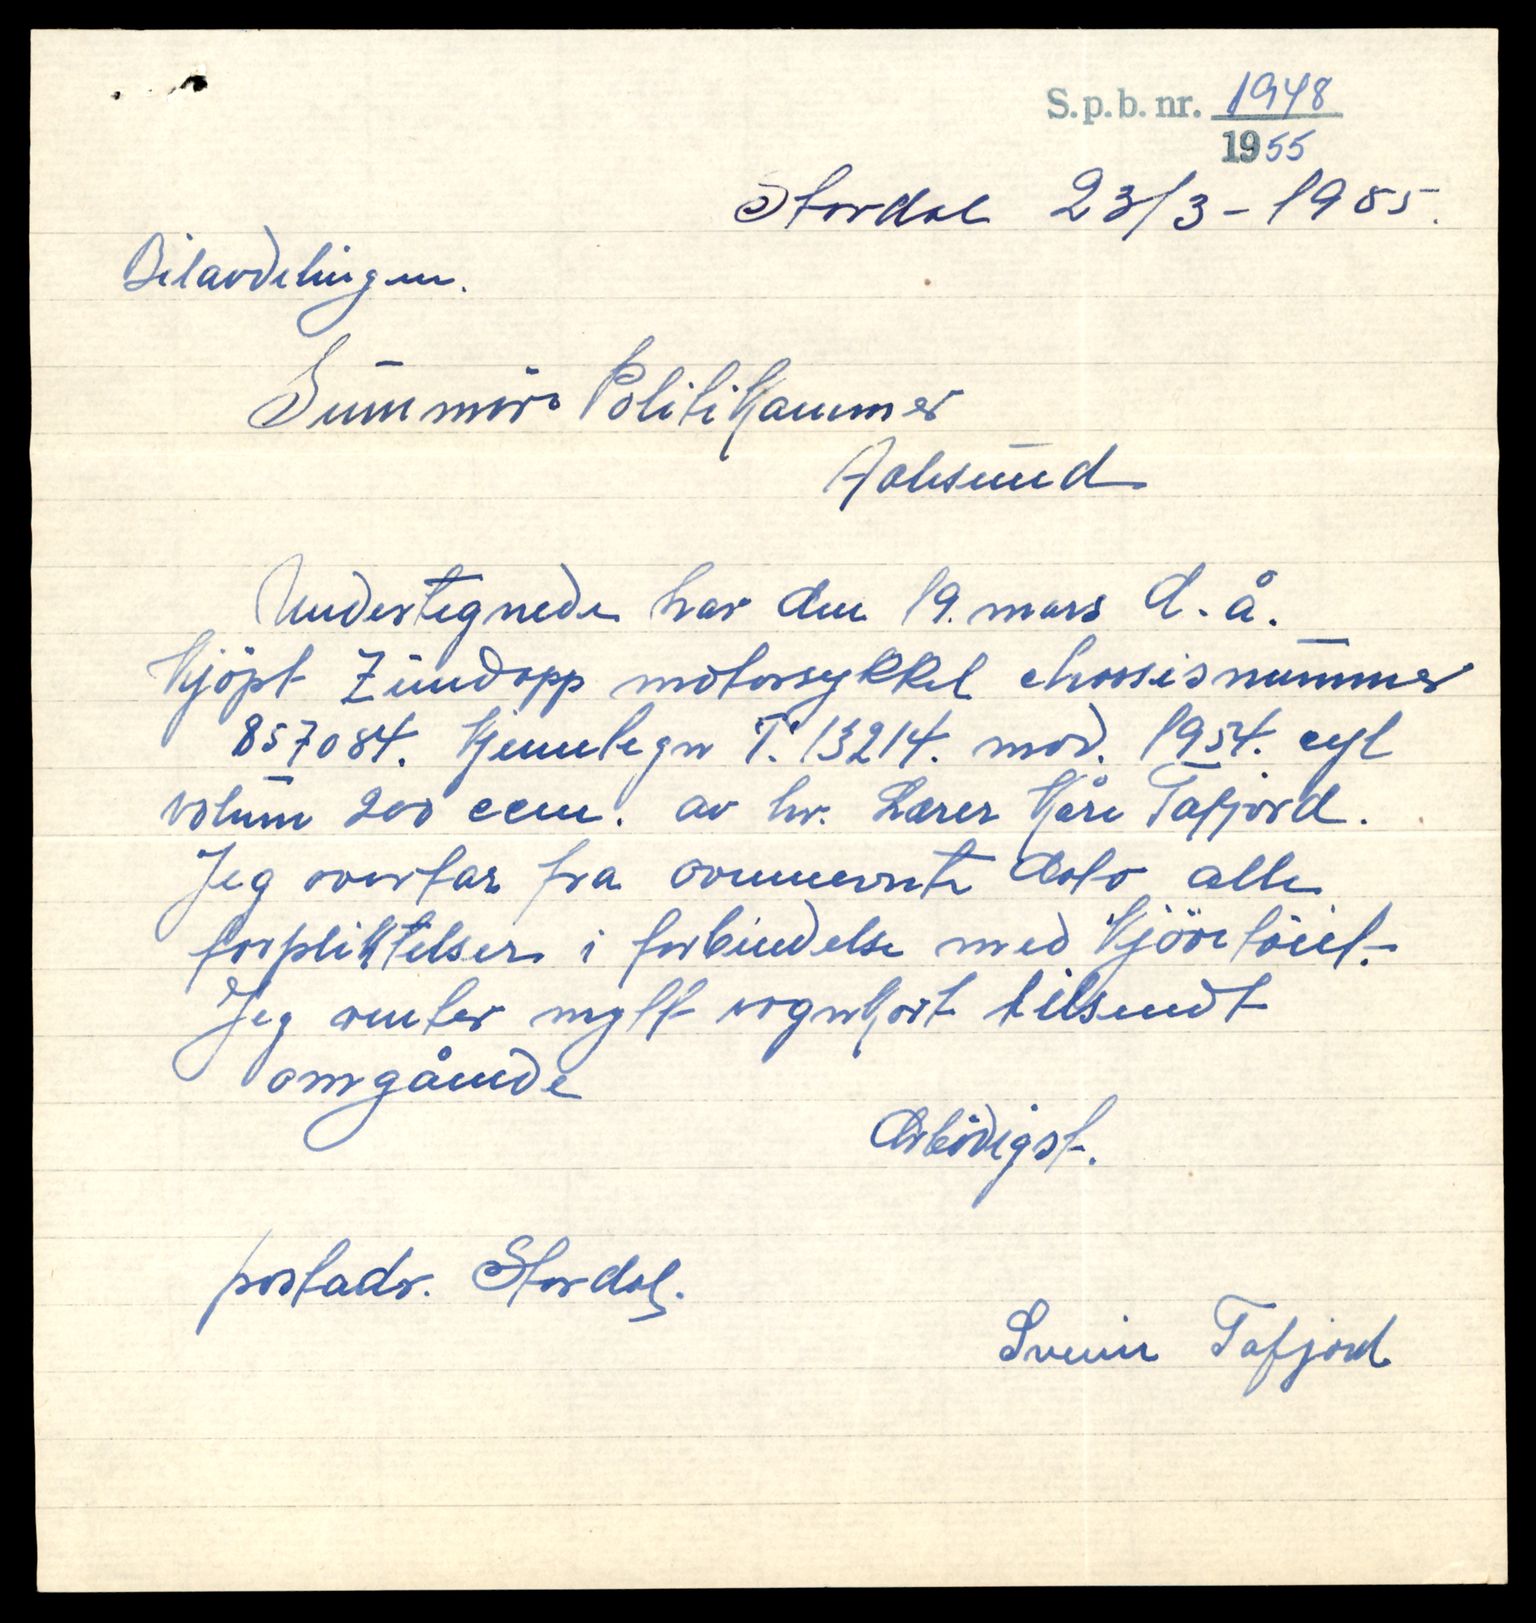 S.p.b. nr. 1948
1955
Stordal 23/3-1955.
Bilavdelingen.
Sunnmøre Politikammer
Aalesund
Undertegnede har den 19. mars d. å.
kjöpt Zündapp motorsykkel chassisnummer
857084. Kjennetegn T. 13214. mod. 1954. cyl
volum 200 ccm. av hr. Lærer Kåre Tafjord.
Jeg overtar fra ovennevnte dato alle
forpliktelser i forbindelse med kjöretöiet.
Jeg venter nytt vognkort tilsendt
omgående
Ærbödigst.
postadr. Stordal.
Svein Tafjord